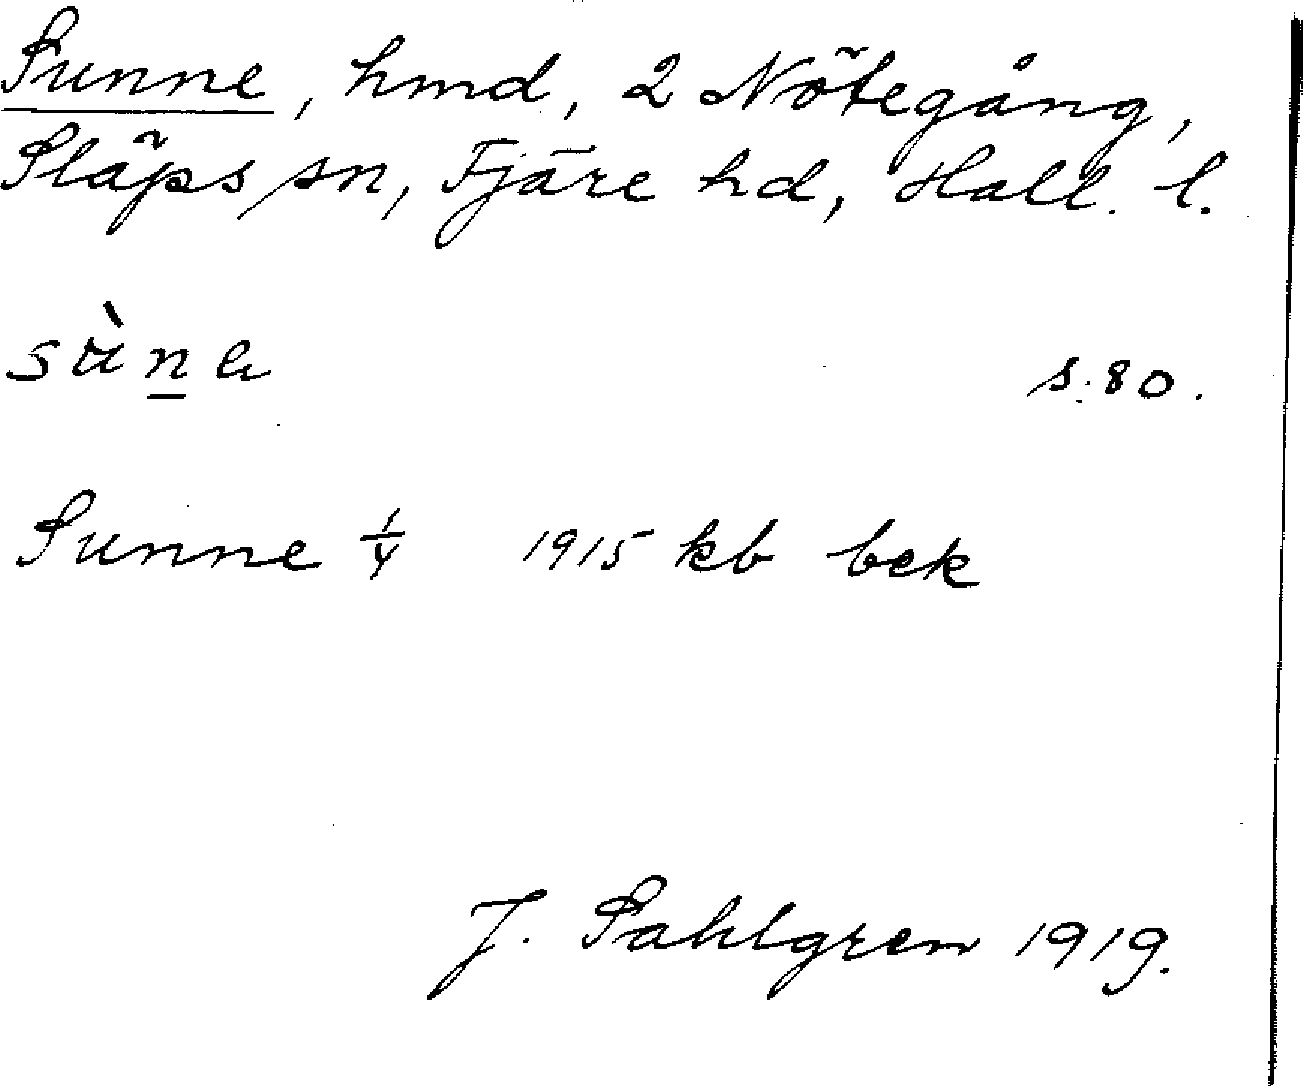 Sunne, hmd, 2 Nötegång,
Släps sn, Fjäre hd, Hall. l.
sùna s. 80.
Sunne 1/4 1915 kb bek
J. Sahlgren 1919.